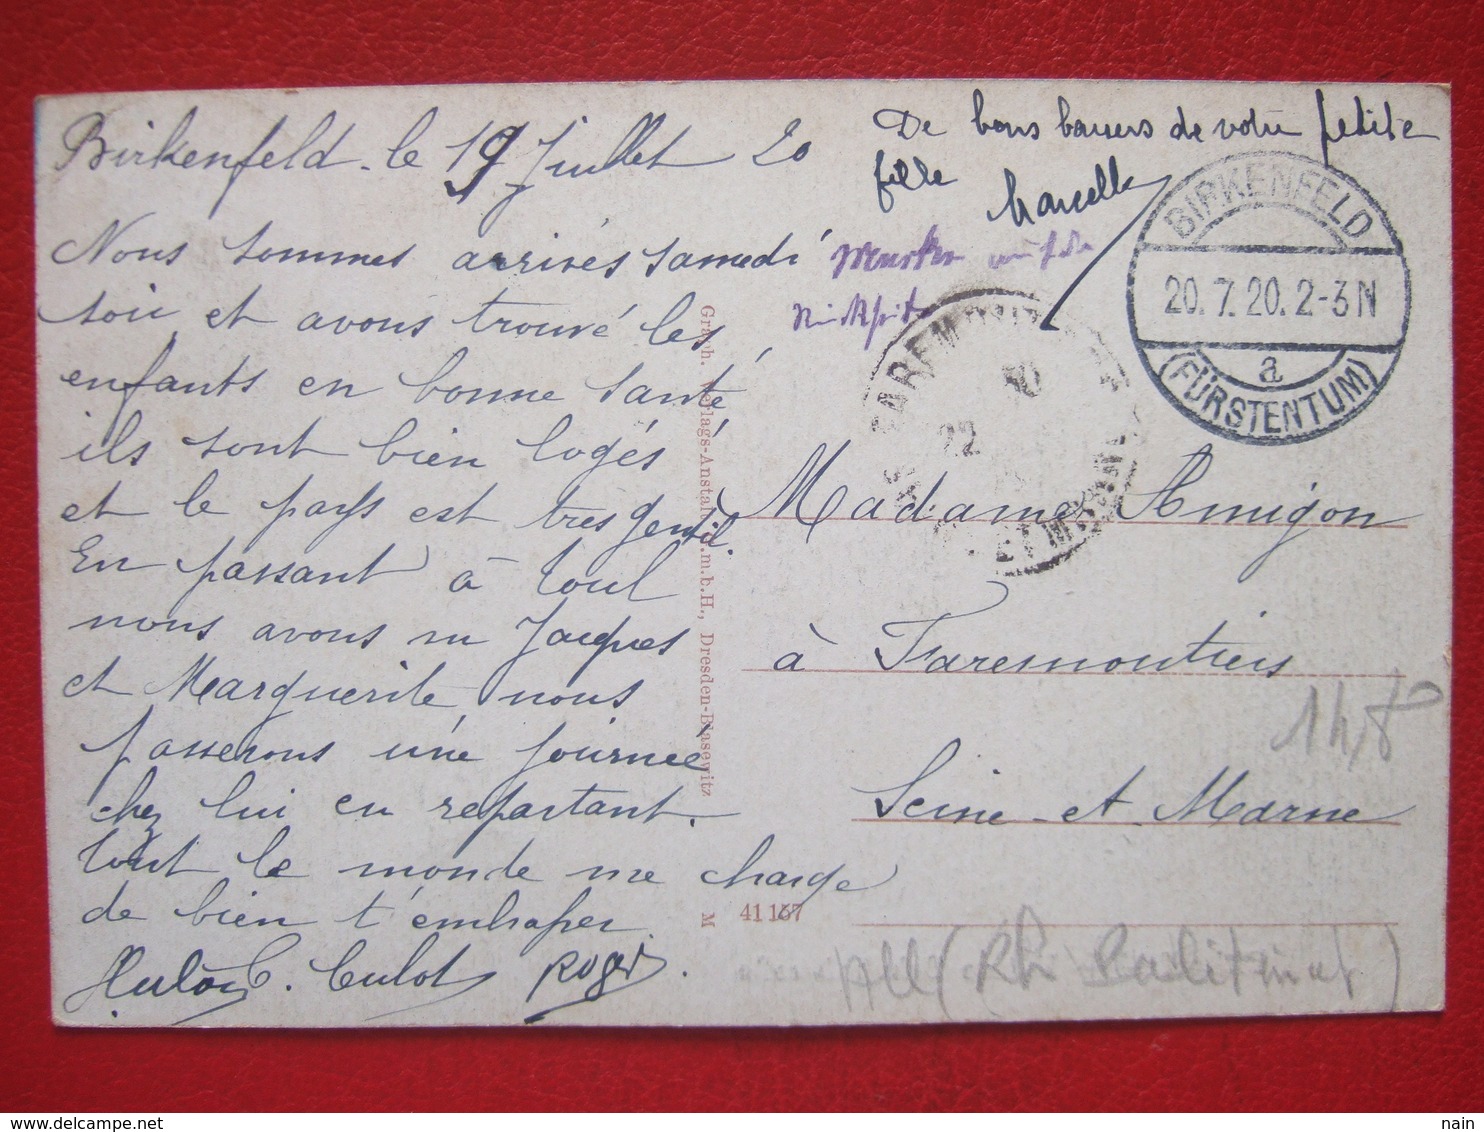 Birkenfeld. le 19 Juillet 20
Nous sommes arrivés samedi
soir et avons trouvé les
enfants en bonne santé,
ils sont bien logés
et le pays est très gentil.
En passant à Toul
nous avons vu Jacques
et Marguerite nous
passerons une journée
chez lui en repartant.
tout le monde me charge
de bien t'embrasser.
Culot Roger.
De bons baisers de votre petite
fille Marcelle
BIRKENFELD
20.7.20.2-3N
a
(FÜRSTENTUM)
22
Madame Amigon
à Faremoutiers
Seine-et-Marne
Graph. Verlags-Anstalt G.m.b.H., Dresden-Blasewitz
M 41167
All (Rh. Palatinat)
delcampe.net
nain